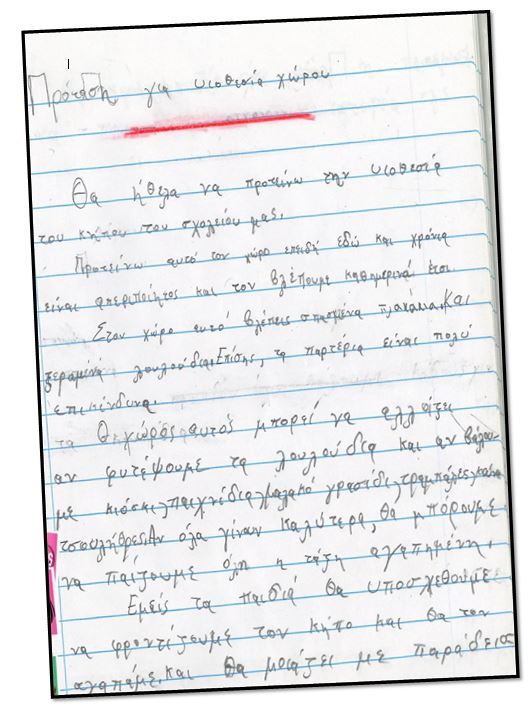 Πρόταση για υιοθεσία χώρου
Θα ήθελα να προτείνω την υιοθεσία
του κήπου του σχολείου μας.
Προτείνω αυτό τον χώρο επειδή εδώ και χρόνια
είναι απεριποίητος και τον βλέπουμε καθημερινά έτσι.
Στον χώρο αυτό βλέπεις σπασμένα πλακάκια και
ξεραμένα λουλούδια. Επίσης, τα παρτέρια είναι πολύ
επικίνδυνα.
Ο χώρος αυτός μπορεί να αλλάξει
αν φυτέψουμε τα λουλούδια και αν βάλου-
με κιόσκι, παιχνίδια, μαλακό γρασίδι, τραμπάλες,
τσουλήθρες. Αν όλα γίνουν καλύτερα, θα μπορούμε
να παίζουμε όλη η τάξη αγαπημένη.
Εμείς τα παιδιά θα υποσχεθούμε
να φροντίζουμε τον κήπο και θα τον
αγαπάμε. και θα μοιάζει με παράδεισο